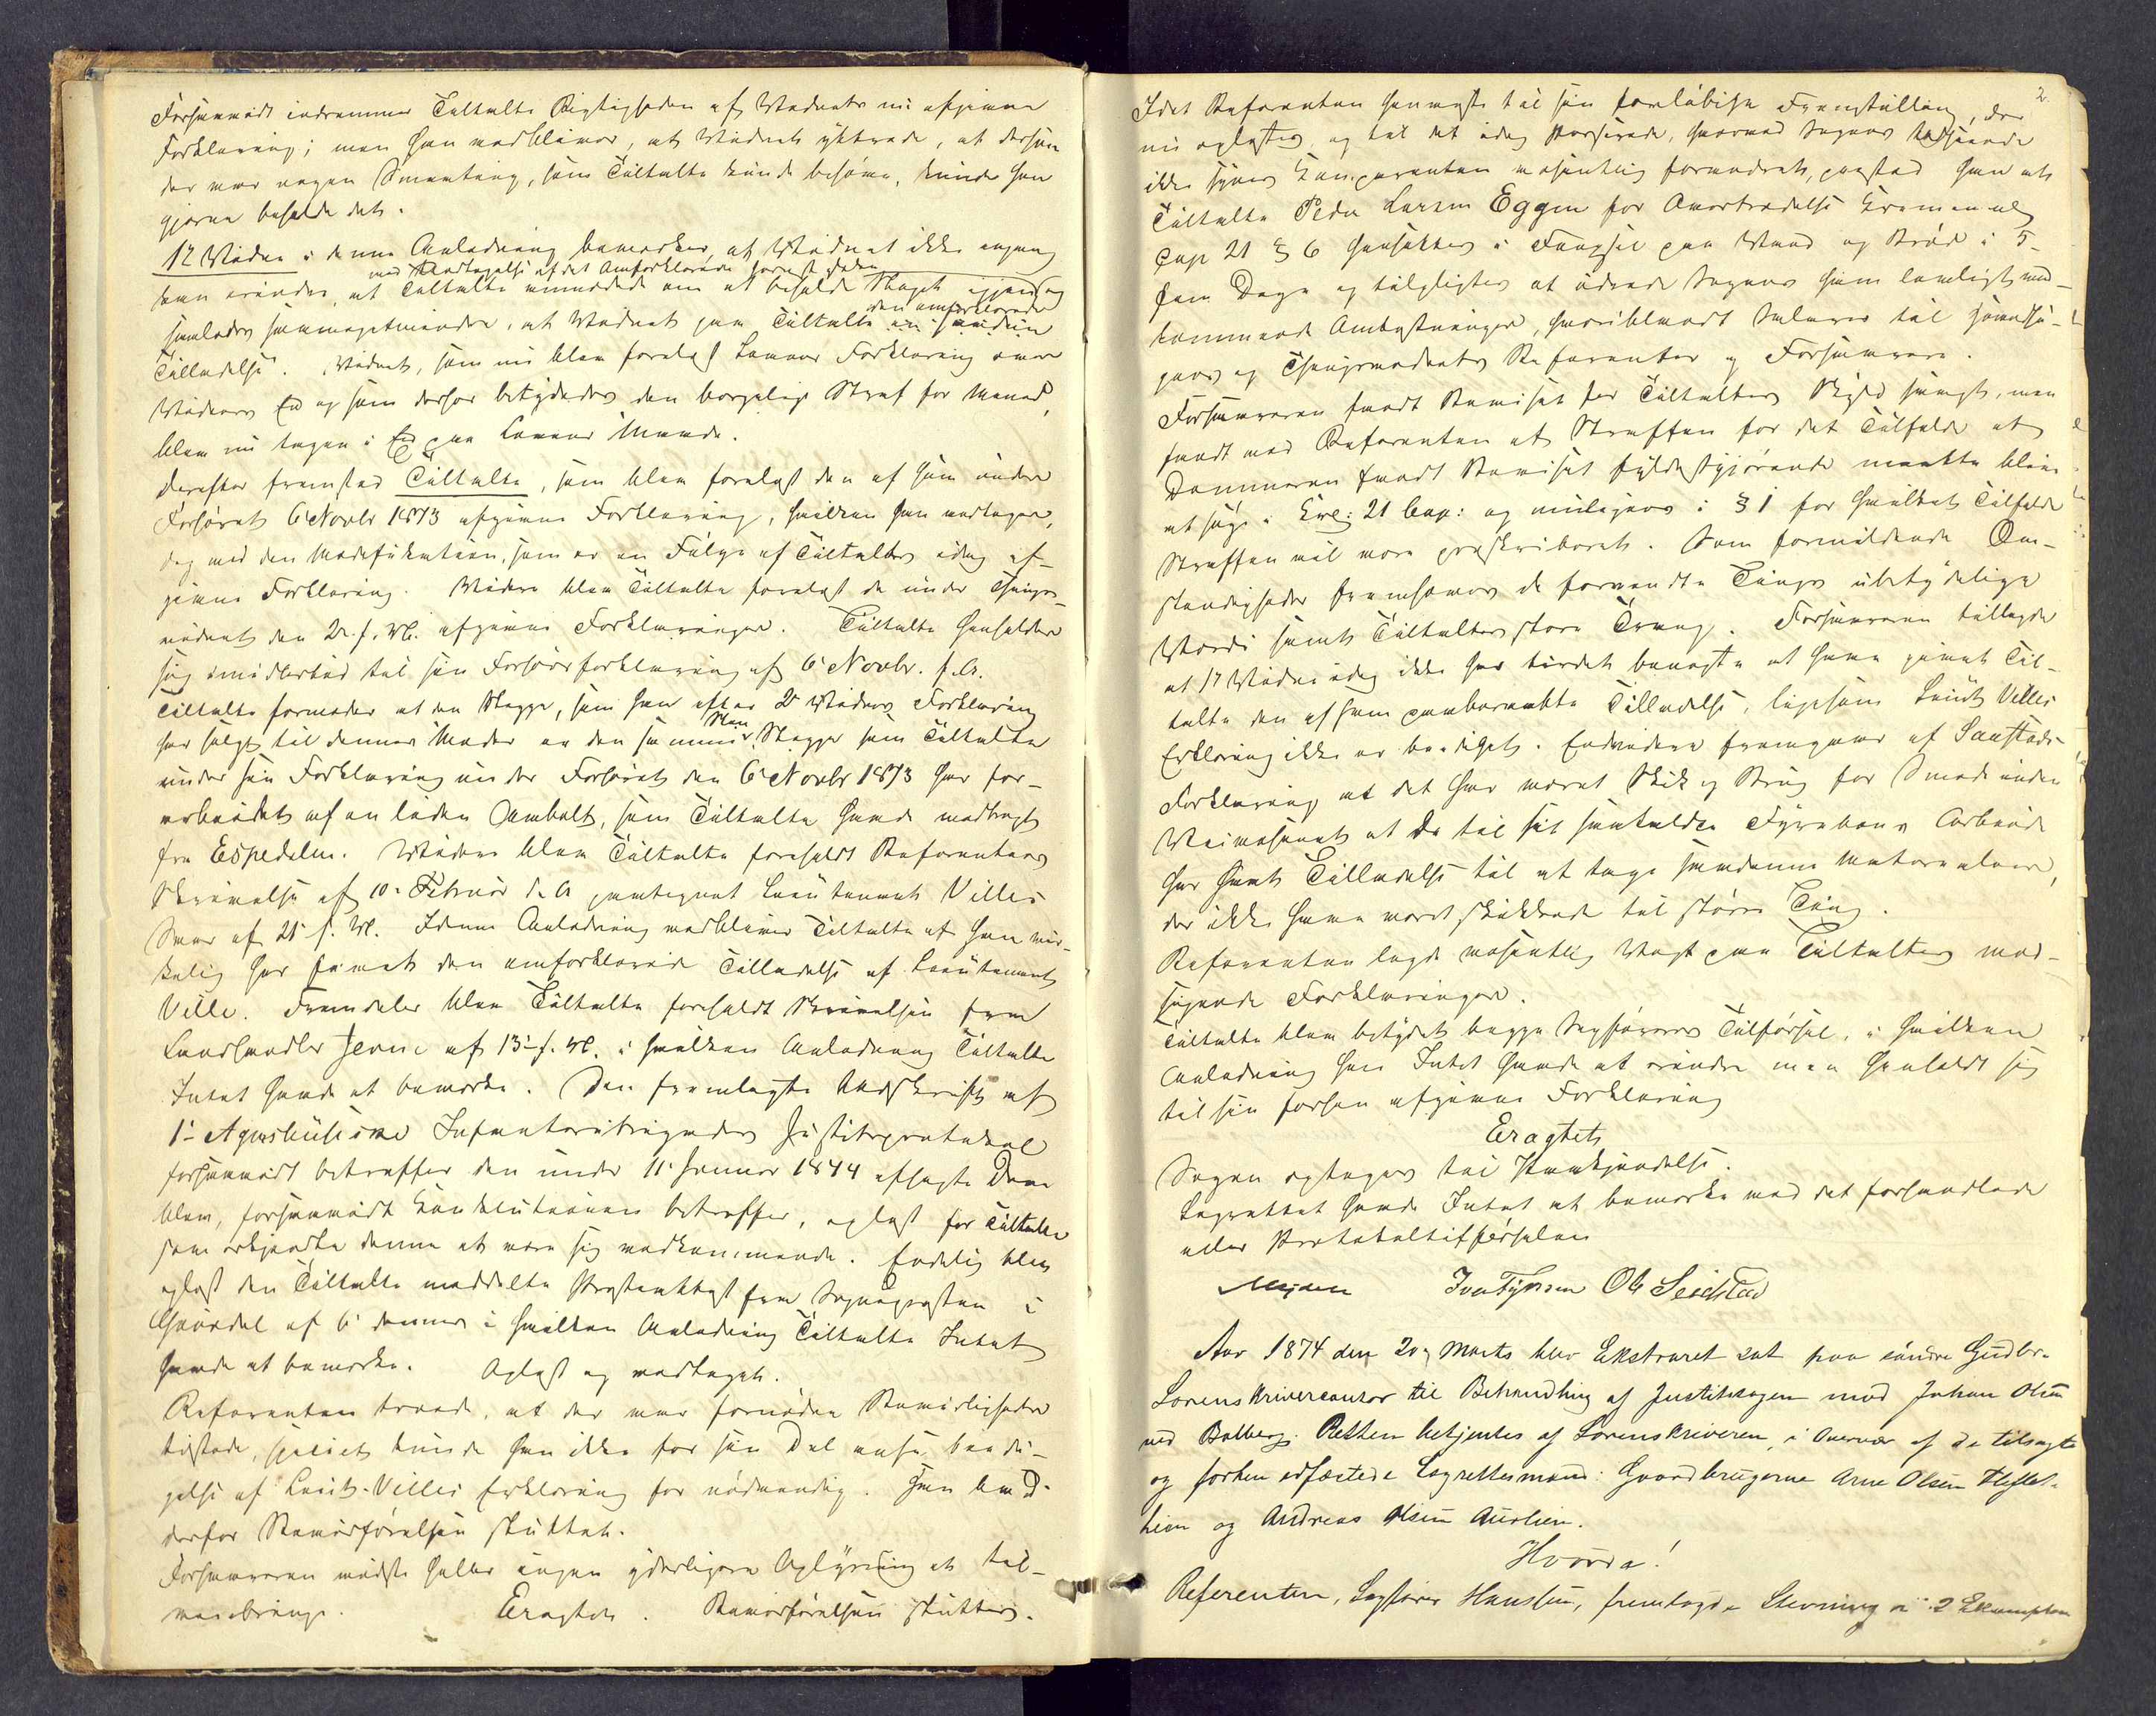 Forsaavidt indrømmer Tiltalte Rigtigheden af Vidnets nu afgivne
Forklaring; men han vedbliver, at Vidnet yttrede, at dersom
der var nogen Smaating, som Tiltalte kunde behøve, kunde han
gjerne beholde det.
1ste Vidne i denne Anledning bemærker, at Vidnet ikke engang
med Undtagelse af det omforklarede første Gang
kan erindre, at Tiltalte anmodede om at beholde Noget igjen og
den omforklarede
saaledes saameget mindre, at Vidnet gav Tiltalte en saadan
Tilladelse. Vidnet, som nu blev forelagt Lovens Forklaring over
Vidners Ed og som derhos betydedes den borgerlige Straf for Mened,
blev nu tagen i Ed paa Lovens Maade.
Derefter fremstod Tiltalte, som blev forelæst den af ham under
Forhøret 6 Novbr 1873 afgivne Forklaring, hvilken han vedtager,
dog med den Modifikation, som er en Følge af Tiltaltes idag af-
givne Forklaring. Videre blev Tiltalte forelæst de under Things-
vidnet den 2 f. M. afgivne Forklaringer. Tiltalte henholder
sig imidlertid til sin Forhørsforklaring af 6 Novbr. f. A.
Tiltalte formoder at den Slægge, som han efter 2det Vidnes Forklaring
har solgt til dennes Moder er den samme Slægge som Tiltalte
under sin Forklaring under Forhøret den 6 Novbr 1873 har for-
arbeidet af en liden Ambolt, som Tiltalte havde medbragt
fra Espedalen. Videre blev Tiltalte foreholdt Referentens
Skrivelse af 10 Februar d. A. paategnet Lieutenant Villes
Svar af 21 f. M. I denne Anledning vedbliver Tiltalte at han vir-
kelig har faaet den omforklarede Tilladelse af Lieutenant
Ville. Fremdeles blev Tiltalte foreholdt Skrivelsen fra
Landhandler Jevne af 13 f. M. i hvilken Anledning Tiltalte
Intet havde at bemærke. Den fremlagte Udskrift af
1ste Agershusiske Infanteribrigades Justitsprotokol
forsaavidt betræffer den under 11 Januar 1844 afsagte Dom
blev, forsaavidt Konklusionen betræffer, oplæst for Tiltalte
som erkjendte denne at være sig vedkommende. Endelig blev
oplæst den Tiltalte meddelte Presteattest fra Sognepresten i
af 6 dennes i hvilken Anledning Tiltalte Intet
havde at bemærke. Oplæst og vedtaget.
Referenten troede, at der var fornødne Bevisligheder
tilstede, kunde han ikke for sin Del anse beedi-
gelse af Lieut. Villes Erklæring for nødvendig. Han bad
derfor Bevisførelsen sluttet.
Forsvareren vidste heller ingen yderligere Oplysning at til-
veiebringe. Eragtet. Bevisførelsen sluttes.
2.
Idet Referenten henviste til sin foreløbige Fremstilling, der
nu oplæstes, og til det idag Passerede, hvorved Sagens Udseende
ikke synes Komparenten væsentlig forandret, paastod han at
Tiltalte Peder Larsen Eggen for Overtrædelse Kriminall.
Cap 21 § 6 hensættes i Fængsel paa Vand og Brød i 5
fem Dage og tilpligtes at udrede Sagens ham lovligt ved-
kommende Omkostninger, hvoriblandt Salærer til
og Thingsvidnets Referenter og Forsvarere.
Forsvareren fandt Beviset for Tiltaltes Skyld svagt, men
fandt med Referenten at Straffen for det Tilfælde at
Dommeren fandt Beviset fyldestgjørende maatte blive
at søge i Krl: 21 Cap: og muligens i § 1 for hvilket Tilfælde
Straffen vil være præskriberet. Som formildende Om-
stændigheder fremhæves de forvendte Tings ubetydelige
Værdi samt Tiltaltes store Trang. Forsvareren tillagde
at 1ste Vidne idag ikke har turdet benægte at have givet Til-
talte den af ham paaberaabte Tilladelse, ligesom Lieut Villes
Erklæring ikke er beediget. Endvidere fremgaar af
Forklaring at det har været Skik og Brug for Smede inden
Veivæsenet at de til sit saakaldte Fyrabens Arbeide
har havt Tilladelse til at tage saadanne Materialier,
der ikke have været skikkede til større Ting.
Referenten lagde væsentlig Vægt paa Tiltaltes mod-
sigende Forklaringer.
Tiltalte blev betydet begge Sagførernes Tilførsel, i hvilken
Anledning han Intet havde at erindre men henholdt sig
til sin forhen afgivne Forklaring
Eragtet
Sagen optages til Paakjendelse.
Lagrettet havde Intet at bemærke ved det forhandlede
eller Protokoltilførselen
Ole
Aar 1874 den 20 Marts blev Ekstraret sat paa søndre Gudbr.
Sorenskrivercontor til Behandling af Justitssagen mod Johan Olsen
ved Balberg. Retten betjentes af Sorenskriveren, i Overvær af de tilsagte
og forhen edfæstede Lagrettesmænd: Gaardbrugerne Arne Olsen
og Andreas Olsen
Hvorda!
Referenten, Sagfører Hanssen, fremlagde Stevning i 2 Exemplarer